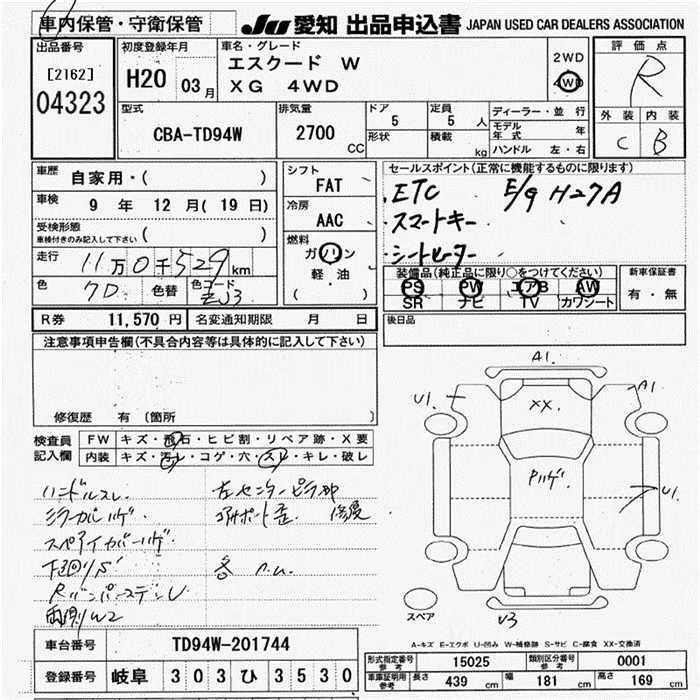 車内保管・守衛保管
JU 愛知 出品申込書 JAPAN USED CAR DEALERS ASSOCIATION
出品番号
[2162]
04323
初度登録年月
H20 03月
車名・グレード
エスクード W
XG 4WD
2WD
4WD
評価点
R
外装 内装
C B
型式
CBA-TD94W
排気量
2700 CC
ドア 5
形状
定員 5 人
積載 kg
ディーラー・並行
モデル年式 年
ハンドル 左・右
車歴
自家用・( )
車検
9 年 12 月( 19 日)
受検形態
車検付きのみ記入して下さい ( )
走行
11万0千529km
色 7D 色替 色コード ZJ3
シフト
FAT
冷房
AAC
燃料
ガソリン
軽・油
( )
セールスポイント(正常に機能するものに限ります)
・ETC E/g H27A
・スマートキー
・シートヒーター
装備品(純正品に限り○をつけてください)
PS PW エアB AW
SR ナビ TV カワシート
新車保証書
有・無
R券 11,570 円 名変通知期限 月 日
後日品
注意事項申告欄(不具合内容等は具体的に記入して下さい)
修復歴 有 (箇所 )
検査員記入欄
FW キズ・飛石・ヒビ割・リペア跡・X要
内装 キズ・汚レ・コゲ・穴・スレ・キレ・破レ
ハンドルスレ 左センターピラー部
ミラーカバーハゲ コアサポート歪 修復
スペアタイヤカバーハゲ
下回りS 各
両側W2
A1.
U1. A1
XX.
Pハゲ.
U1
U3
スペア
A-キズ E-エクボ U-凹み W-補修跡 S-サビ C-腐食 XX-交換済
車台番号 TD94W-201744
登録番号 岐阜 303 ひ 3530
形式指定番号 参考 15025 類別区分番号 参考 0001
車庫証明用 参考 長さ 439 cm 幅 181 cm 高さ 169 cm